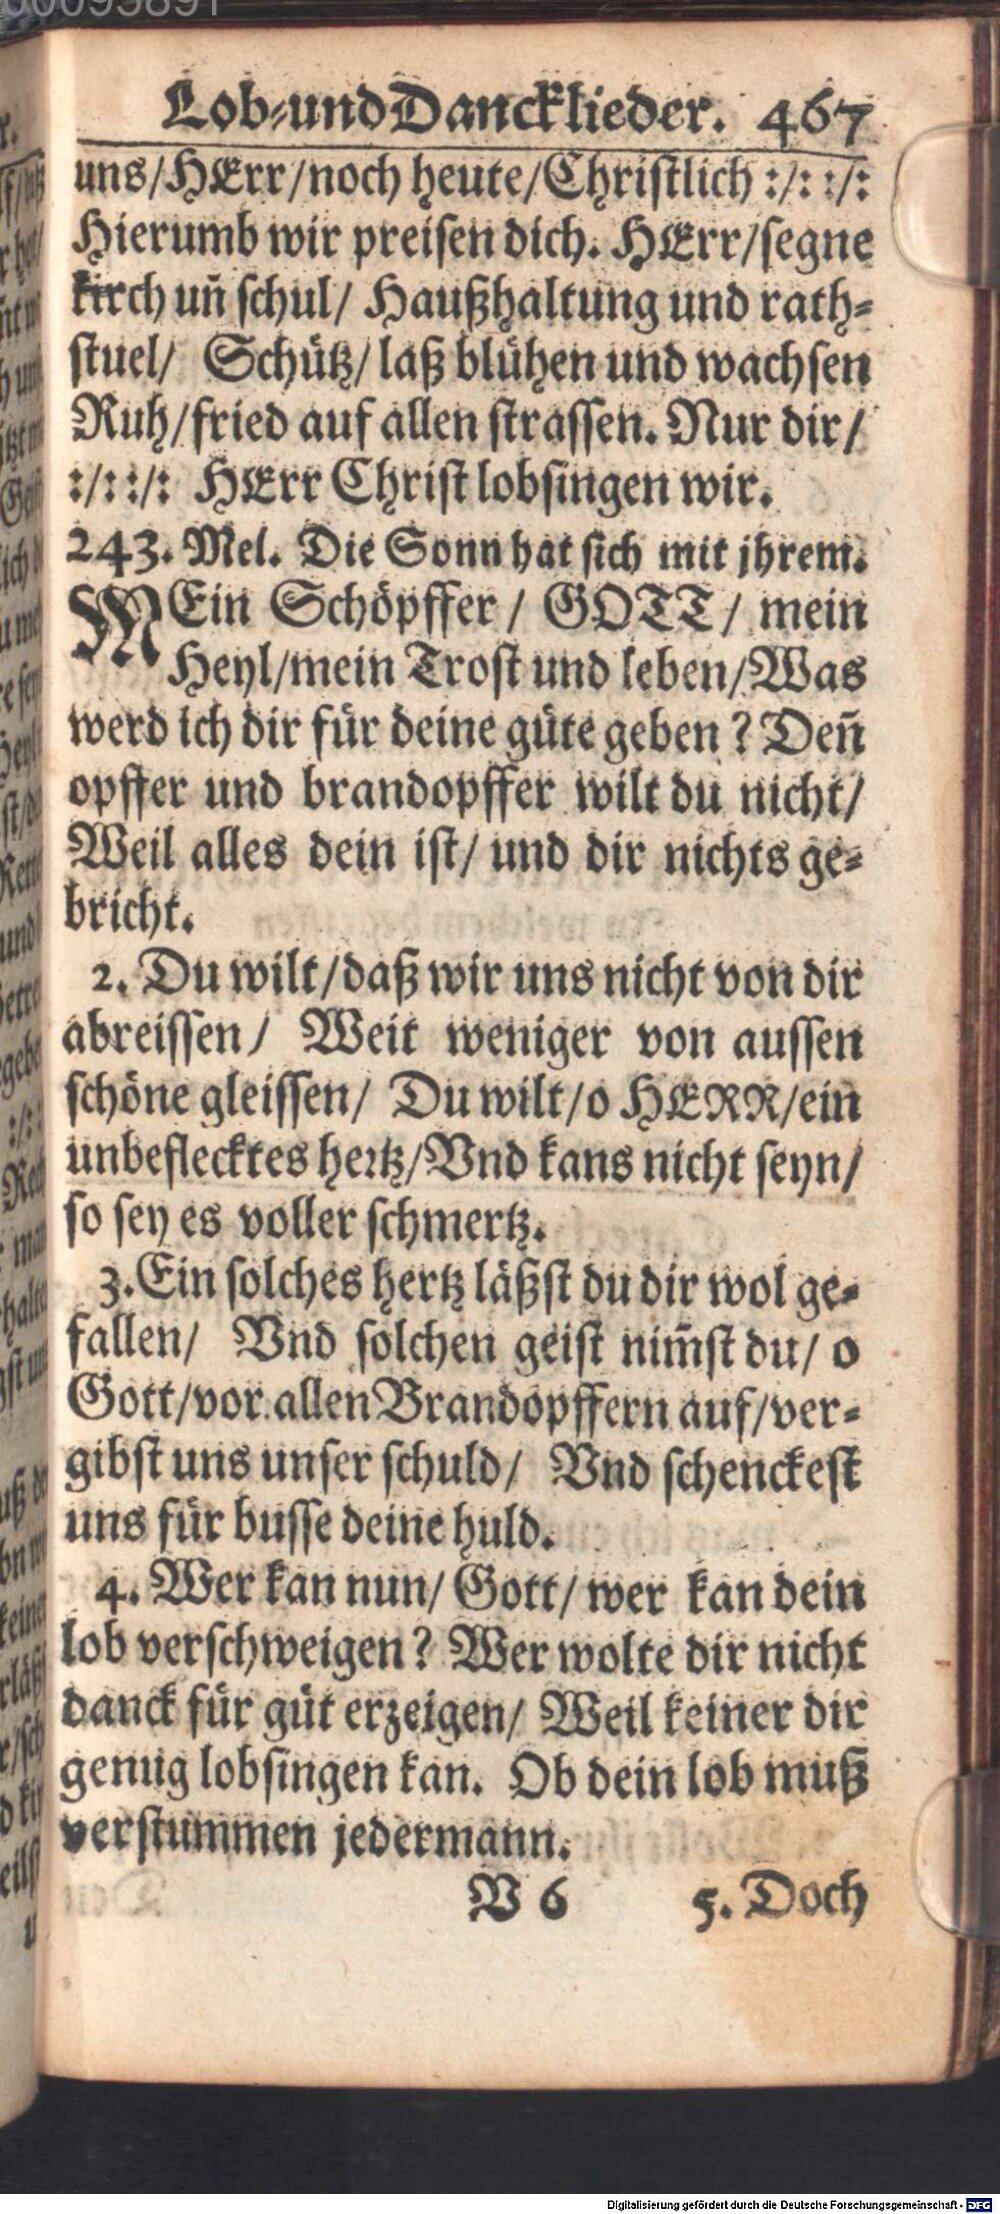 Lob-und Dancklieder. 467
uns/HErr/noch heute/Christlich :/: :/:
Hierumb wir preisen dich. HErr/segne
kirch uñ schul/ Haußhaltung und rath-
stuel/ Schütz/laß blühen und wachsen
Ruh/fried auf allen strassen. Nur dir/
:/: :/: HErr Christ lobsingen wir.
243. Mel. Die Sonn hat sich mit jhrem.
MEin Schöpffer/ GOTT/ mein
Heyl/mein Trost und leben/Was
werd ich dir für deine güte geben? Deñ
opffer und brandopffer wilt du nicht/
Weil alles dein ist/ und dir nichts ge-
bricht.
2. Du wilt/daß wir uns nicht von dir
abreissen/ Weit weniger von aussen
schöne gleissen/ Du wilt/o HERR/ein
unbeflecktes hertz/Vnd kans nicht seyn/
so sey es voller schmertz.
3. Ein solches hertz läßst du dir wol ge-
fallen/ Vnd solchen geist nim̃st du/ o
Gott/vor allen Brandopffern auf/ver-
gibst uns unser schuld/ Vnd schenckest
uns für busse deine huld.
4. Wer kan nun/ Gott/ wer kan dein
lob verschweigen? Wer wolte dir nicht
danck für güt erzeigen/ Weil keiner dir
genug lobsingen kan. Ob dein lob muß
verstummen jedermann.
V 6 5. Doch
Digitalisierung gefördert durch die Deutsche Forschungsgemeinschaft - DFG